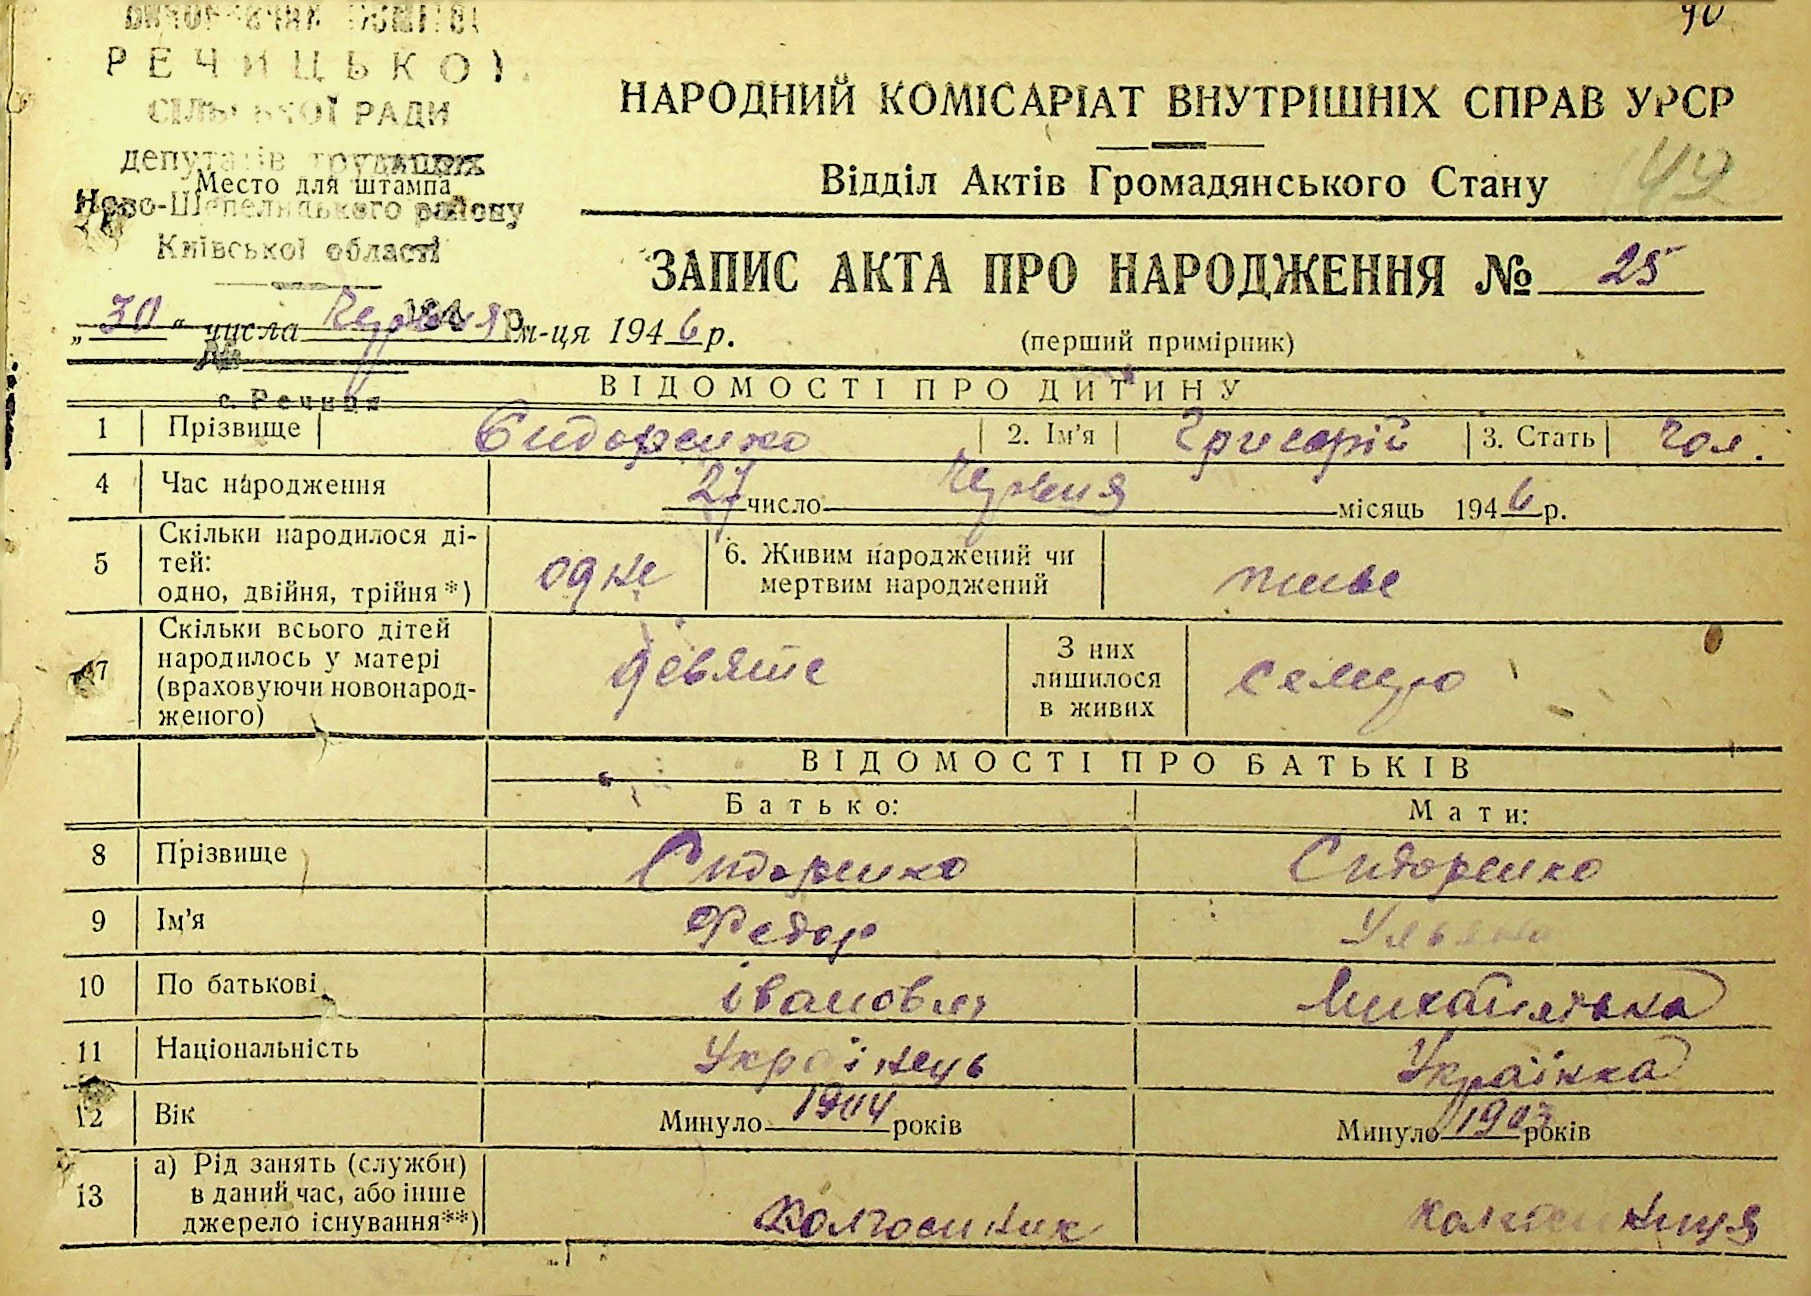 РЕЧИЦЬКОЇ
СІЛЬСЬКОЇ РАДИ
депутатів трудящих
Место для штампа
Ново-Шепелицького району
Київської області
194 р.
№
с. Речиця
40
НАРОДНИЙ КОМІСАРІАТ ВНУТРІШНІХ СПРАВ УРСР
Відділ Актів Громадянського Стану
ЗАПИС АКТА ПРО НАРОДЖЕННЯ № 25
„30“ числа Червня м-ця 1946 р.
(перший примірник)
ВІДОМОСТІ ПРО ДИТИНУ
1 Прізвище Сидоренко 2. Ім'я Григорій 3. Стать Чол.
4 Час народження 27 число Червня місяць 1946 р.
5 Скільки народилося ді-
тей:
одно, двійня, трійня*) одне
6. Живим народжений чи
мертвим народжений живе
7 Скільки всього дітей
народилось у матері
(враховуючи новонарод-
женого) девяте
З них
лишилося
в живих семеро
ВІДОМОСТІ ПРО БАТЬКІВ
Батько: Мати:
8 Прізвище Сидоренко Сидоренко
9 Ім'я Федор Ульяна
10 По батькові іванович Михайлівна
11 Національність Українець Українка
12 Вік Минуло 1904 років Минуло 1903 років
13 а) Рід занять (служби)
в даний час, або інше
джерело існування**) колгоспник колгоспниця